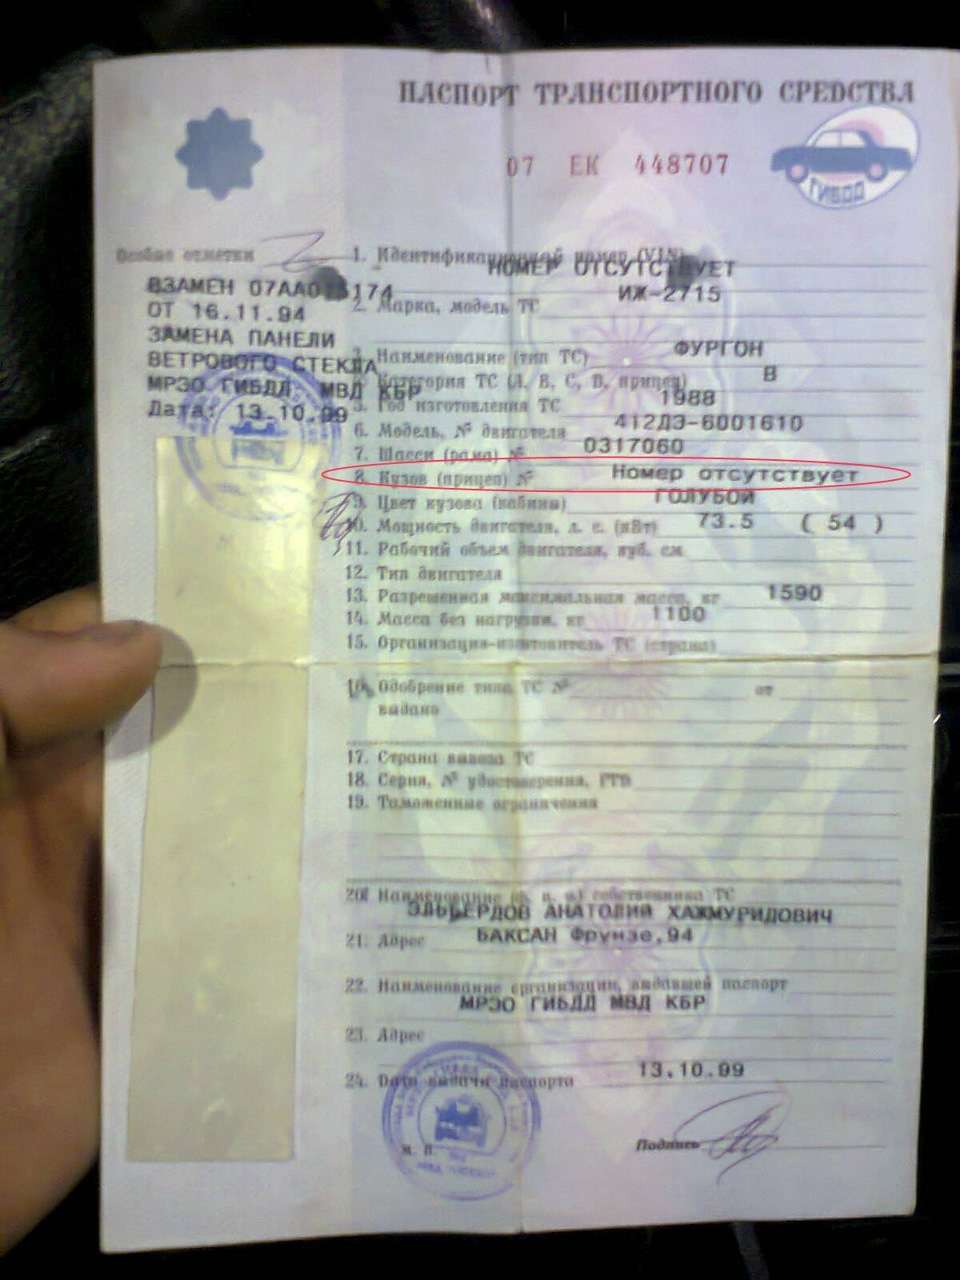 ПАСПОРТ ТРАНСПОРТНОГО СРЕДСТВА
07 ЕК 448707
ГИБДД
Особые отметки
ВЗАМЕН 07АА 174
ОТ 16.11.94
ЗАМЕНА ПАНЕЛИ
ВЕТРОВОГО СТЕКЛА
МРЭО ГИБДД МВД КБР
Дата: 13.10.99
1. Идентификационный номер (VIN)
НОМЕР ОТСУТСТВУЕТ
2. Марка, модель ТС ИЖ-2715
3. Наименование (тип ТС) ФУРГОН
4. Категория ТС (А, В, С, D, прицеп) В
5. Год изготовления ТС 1988
6. Модель, № двигателя 412ДЭ-6001610
7. Шасси (рама) № 0317060
8. Кузов (прицеп) № Номер отсутствует
9. Цвет кузова (кабины) ГОЛУБОЙ
10. Мощность двигателя, л. с. (кВт) 73.5 ( 54 )
11. Рабочий объем двигателя, куб. см
12. Тип двигателя
13. Разрешенная максимальная масса, кг 1590
14. Масса без нагрузки, кг 1100
15. Организация-изготовитель ТС (страна)
16. Одобрение типа ТС № от
выдано
17. Страна вывоза ТС
18. Серия, № удостоверения, ГТД
19. Таможенные ограничения
20. Наименование (ф. и. о.) собственника ТС
ЭЛЬБЕРДОВ АНАТОЛИЙ ХАЖМУРИДОВИЧ
21. Адрес БАКСАН Фрунзе,94
22. Наименование организации, выдавшей паспорт
МРЭО ГИБДД МВД КБР
23. Адрес
24. Дата выдачи паспорта 13.10.99
М. П. Подпись